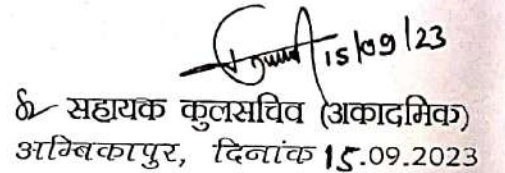 15/09/23
सहायक कुलसचिव (अकादमिक)
अम्बिकापुर, दिनांक 15.09.2023